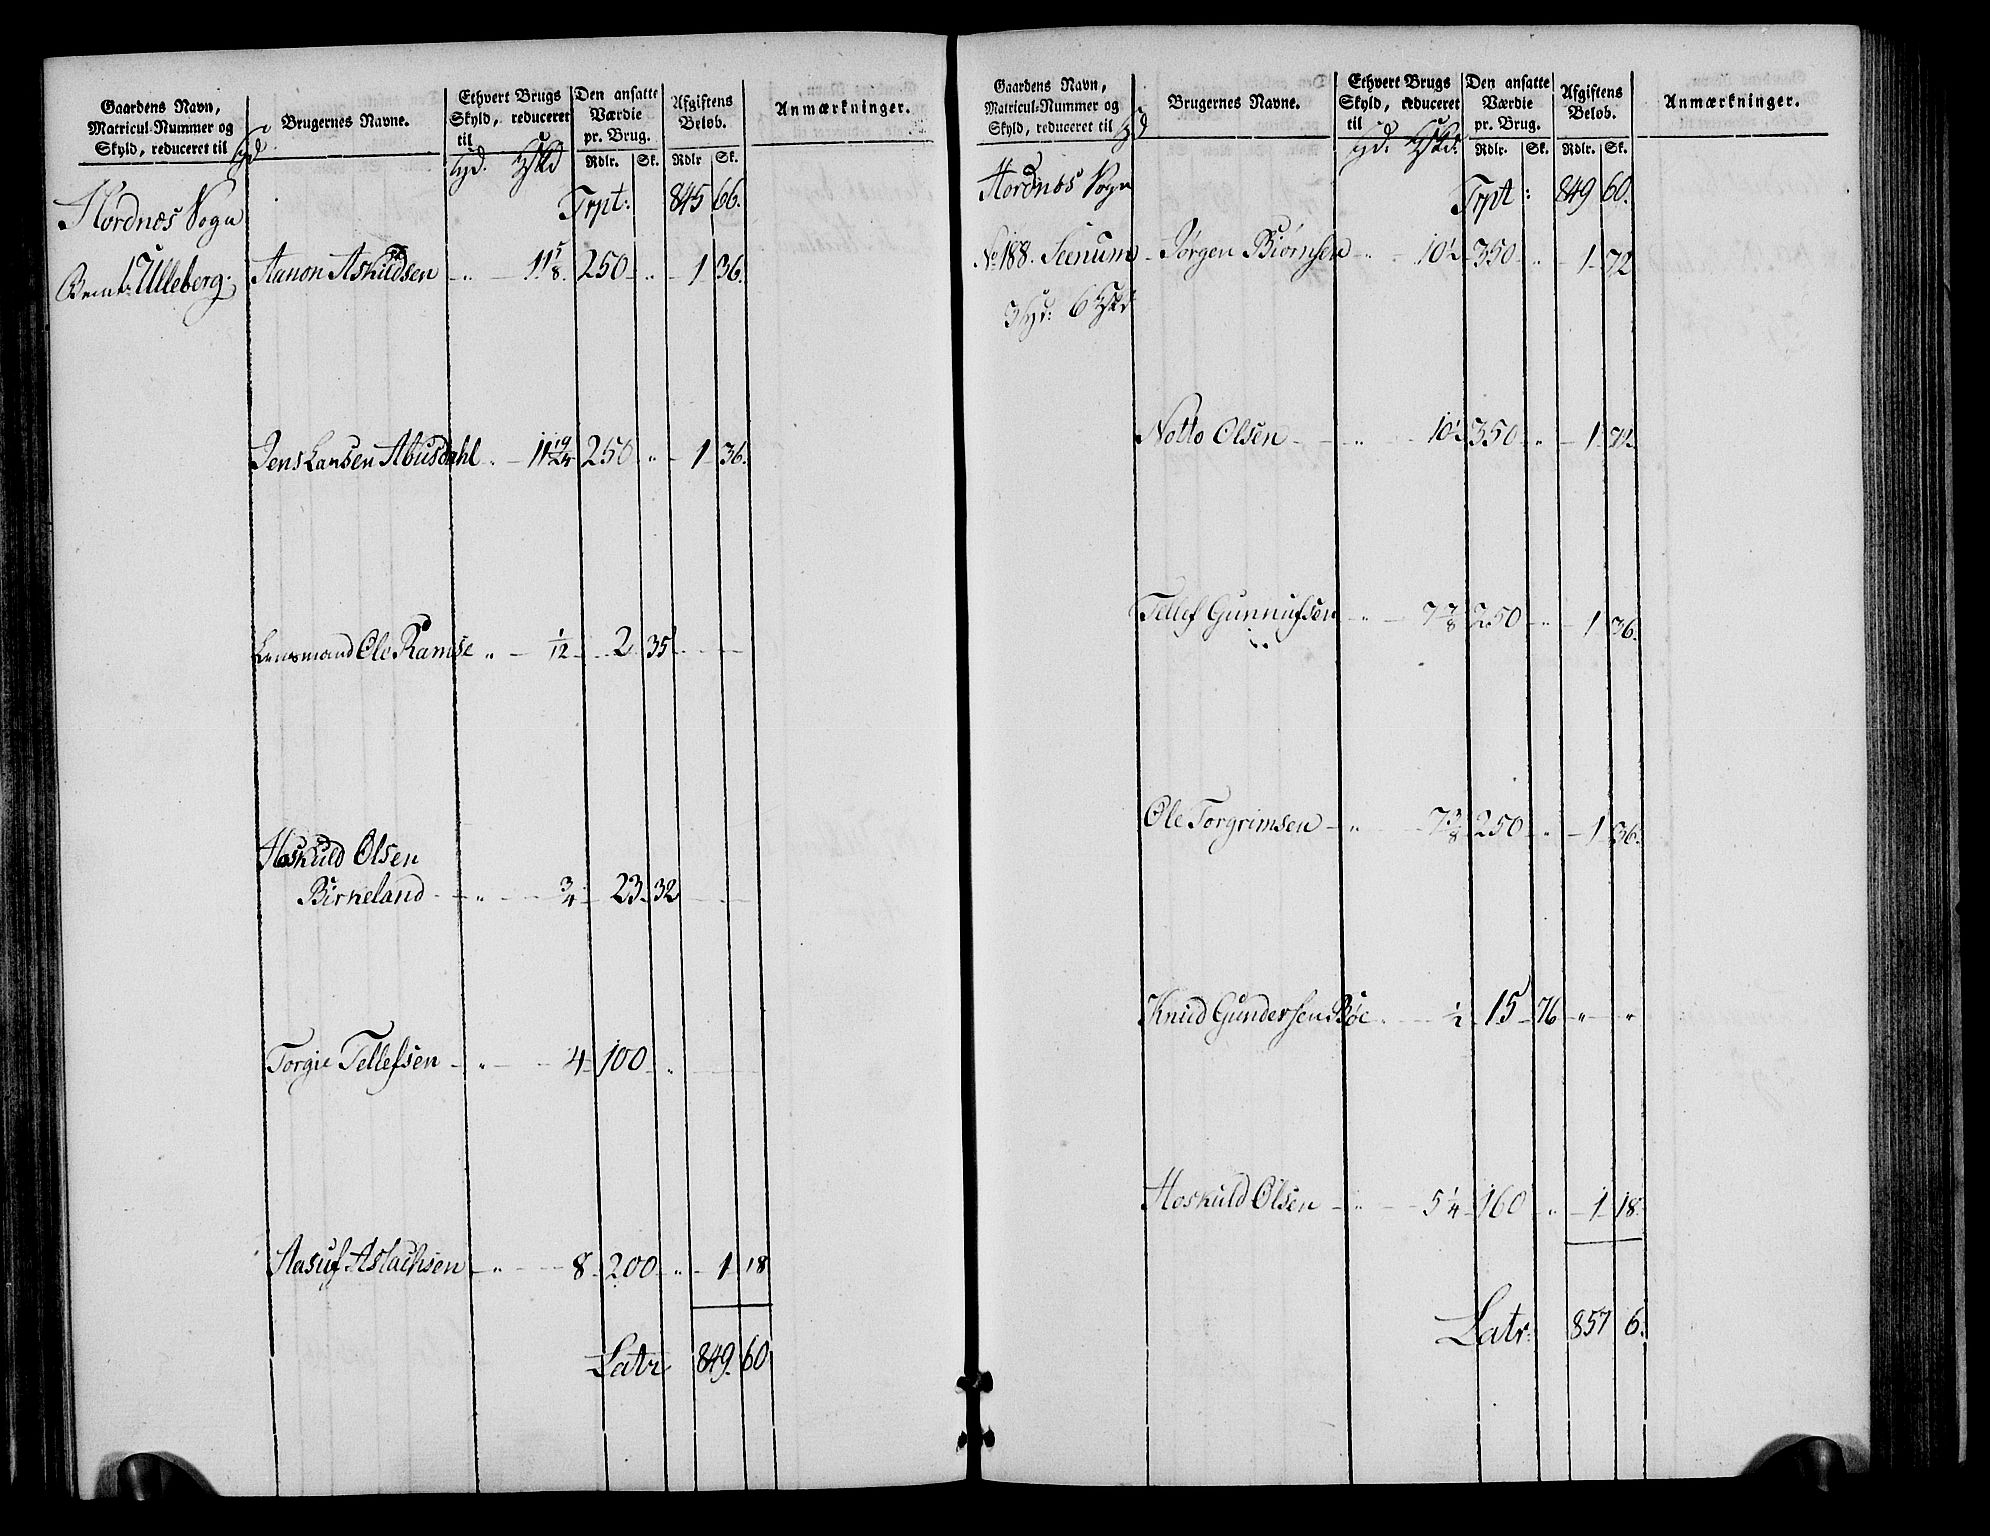 Gaardens Navn,
Matricul-Nummer og
Skyld, reduceret til
Brugernes Navne.
Ethvert Brugs
Skyld, reduceret
til
Den ansatte
Værdie
pr. Brug.
Rdlr. Sk.
Afgiftens
Beløb.
Rdlr Sk.
Anmærkninger.
Hordnæs Sogn Trpt: 845 66.
Ulleberg Aanon Askildsen " 11 5/8. 250 " 1 36.
Jens Larsen Abusdahl " 11 19/24 250 " 1 36.
Lensmand Ole Ramse " 1/12 2 35
Hoskuld Olsen
Birkeland " 3/4 23 32
Torgie Tellefsen " 4 100 "
Aasuf Aslachsen " 8 200 " 1 18
Latr 849. 60
Gaardens Navn,
Matricul-Nummer og
Skyld, reduceret til
Brugernes Navne.
Ethvert Brugs
Skyld, reduceret
til
Den ansatte
Værdie
pr. Brug.
Rdlr. Sk.
Afgiftens
Beløb.
Rdlr. Sk.
Anmærkninger.
Hordnæs Sogn Trpt: 849 60.
No 188. Jørgen Biørnsen " 10 1/2 350 " 1 72
Notto Olsen " 10 1/2 350 " 1 72
Tellef Gunnufsen " 7 7/8 250 " 1 36.
Ole Torgrimsen " 7 250 " 1 36.
Knud Gundersen Bøe " 1/2 15 76 " "
Hoskuld Olsen " 5 1/4 160 " 1 18
Latr: 857 6.